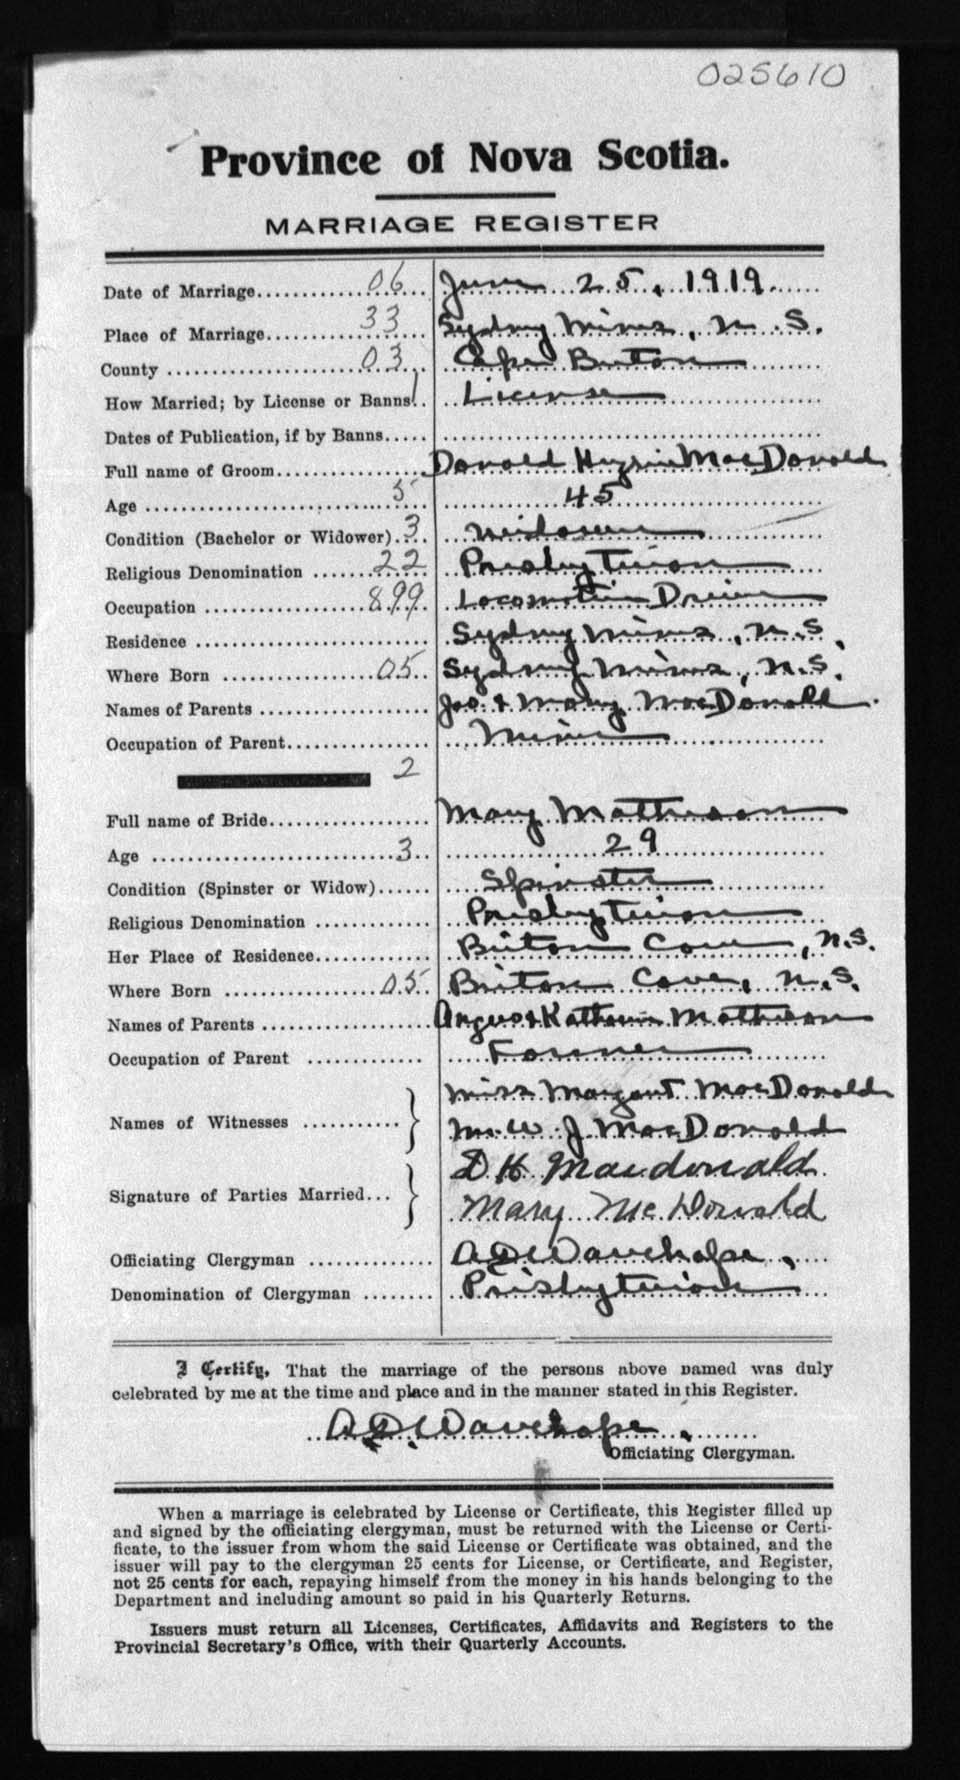 025610
Province of Nova Scotia.
MARRIAGE REGISTER
Date of Marriage 06 June 25, 1919.
Place of Marriage 33 Sydney Mines, N.S.
County 03 Cape Breton
How Married; by License or Banns 1 License
Dates of Publication, if by Banns
Full name of Groom Donald MacDonald
Age 5 45
Condition (Bachelor or Widower) 3 Widower
Religious Denomination 22 Presbyterian
Occupation 899 Locomotive Driver
Residence Sydney Mines, N.S.
Where Born 05 Sydney Mines, N.S.
Names of Parents & Mary MacDonald
Occupation of Parent Miner
2
Full name of Bride Mary Matheson
Age 3 29
Condition (Spinster or Widow) Spinster
Religious Denomination Presbyterian
Her Place of Residence Briton Cove, N.S.
Where Born 05 Briton Cove, N.S.
Names of Parents Angus & Katherine Matheson
Occupation of Parent Farmer
Names of Witnesses Miss Margaret MacDonald
W. J. MacDonald
Signature of Parties Married D H Macdonald
Mary McDonald
Officiating Clergyman A D Wauchope
Denomination of Clergyman Presbyterian
I Certify, That the marriage of the persons above named was duly
celebrated by me at the time and place and in the manner stated in this Register.
A D Wauchope
Officiating Clergyman.
When a marriage is celebrated by License or Certificate, this Register filled up
and signed by the officiating clergyman, must be returned with the License or Certi-
ficate, to the issuer from whom the said License or Certificate was obtained, and the
issuer will pay to the clergyman 25 cents for License, or Certificate, and Register,
not 25 cents for each, repaying himself from the money in his hands belonging to the
Department and including amount so paid in his Quarterly Returns.
Issuers must return all Licenses, Certificates, Affidavits and Registers to the
Provincial Secretary's Office, with their Quarterly Accounts.